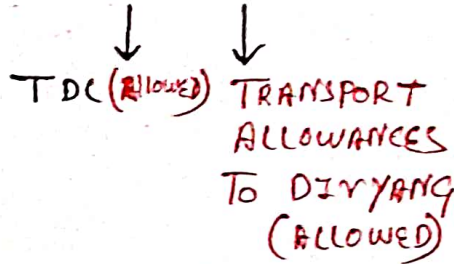 TDC (Allowed) TRANSPORT
ALLOWANCES
To DIVYANG
(ALLOWED)